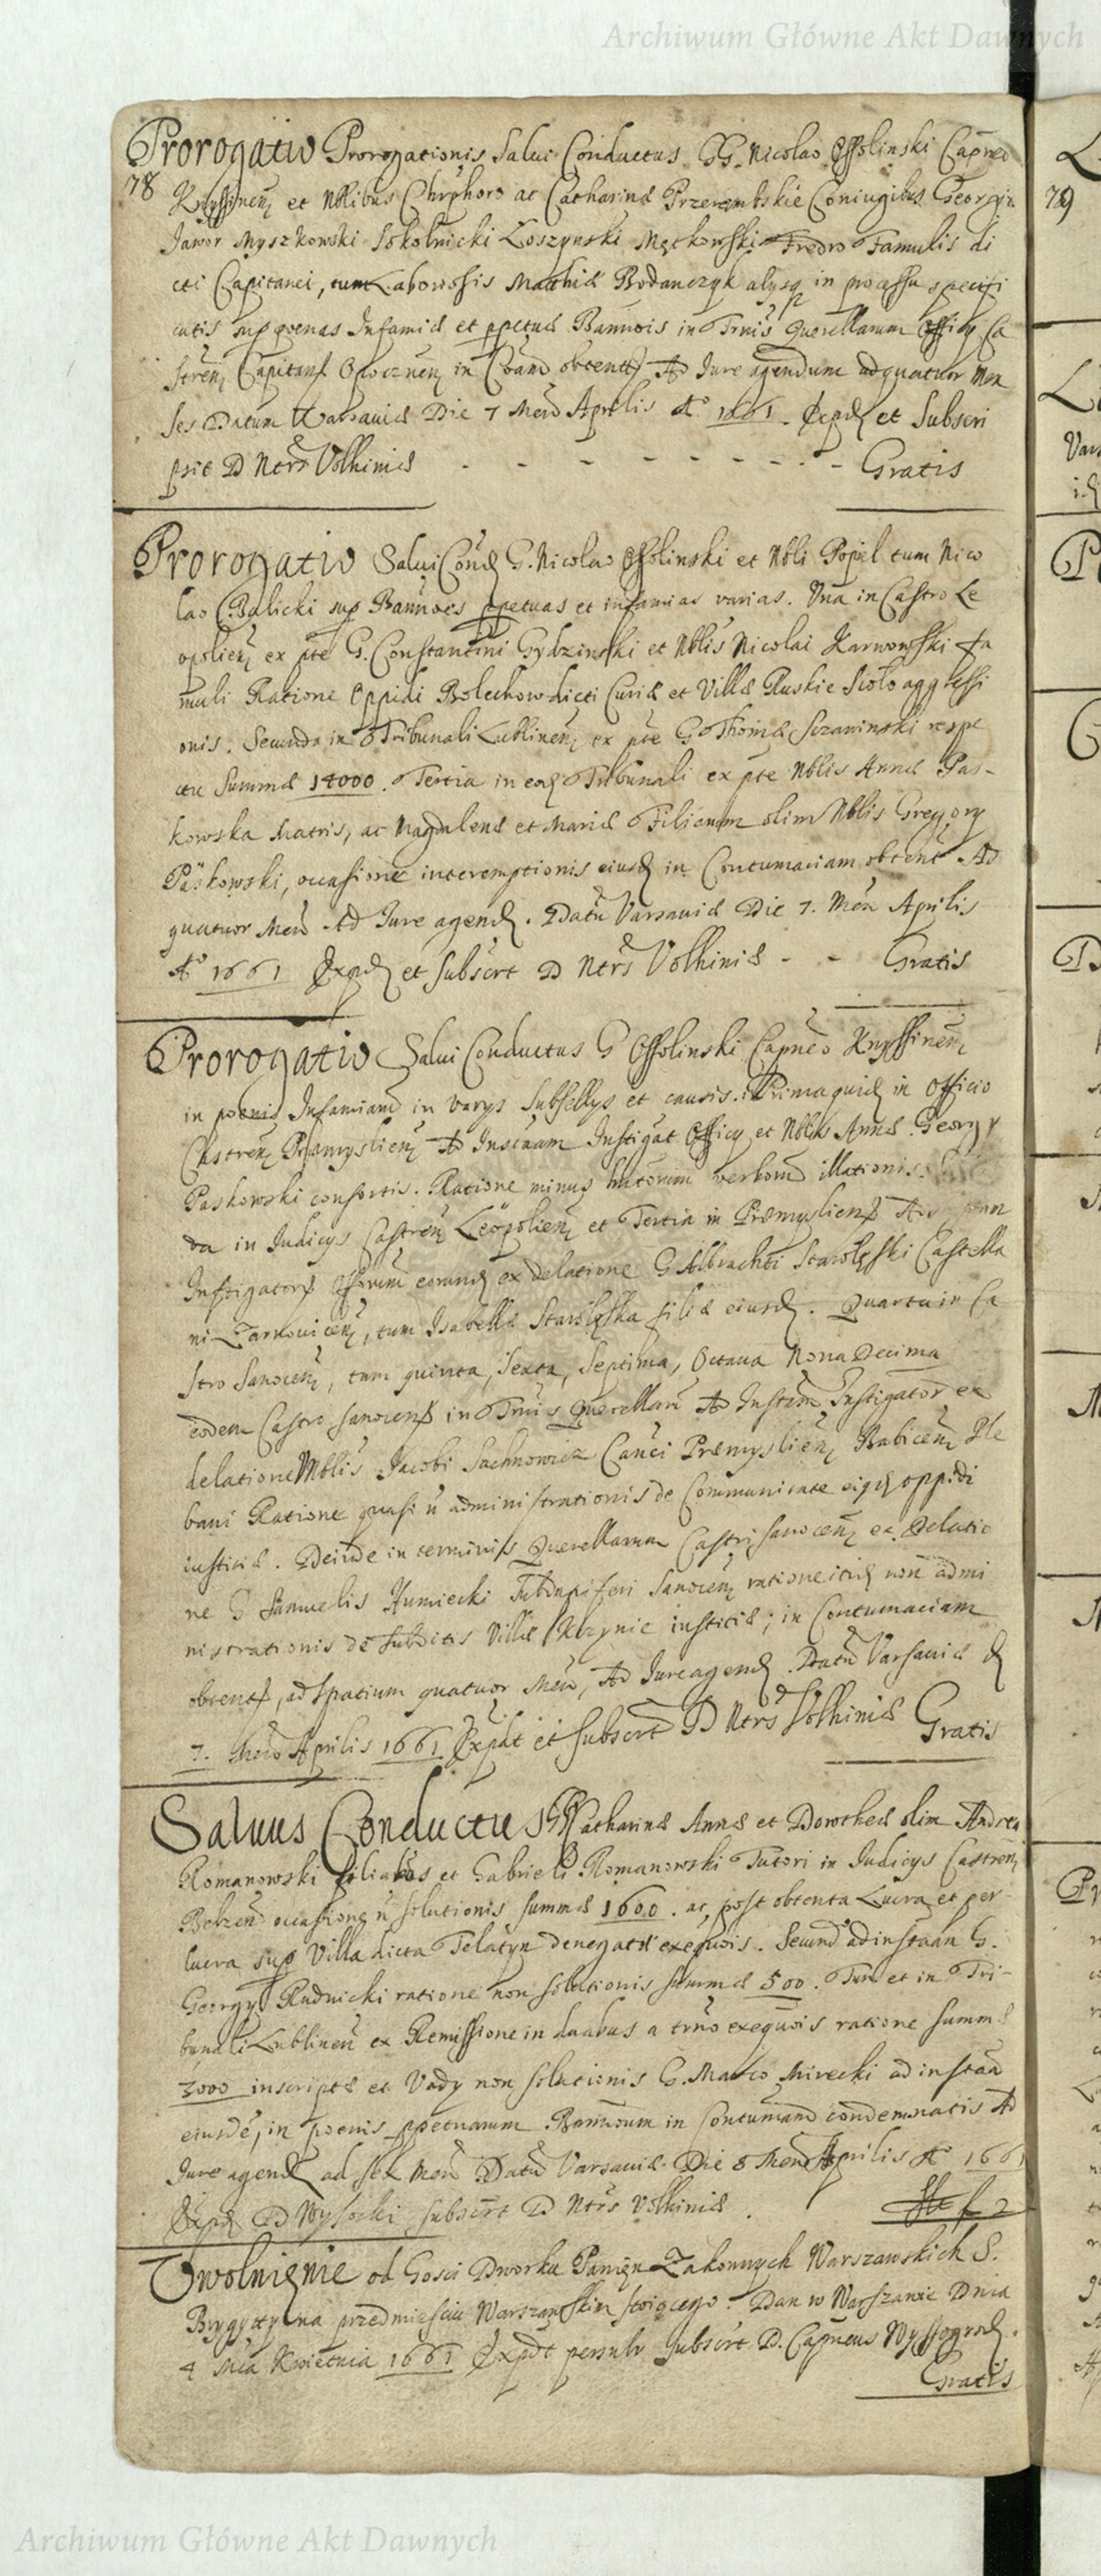 Archiwum Główne Akt Dawnych
Prorogatio Prorogationis Salui Conductus GG. Nicolao Ossolinski Capneo
78
et Nblibus Chrphoro ac Catharinæ Przerembskie Coniugibus Georgio
Jawor Myszkowski Sokolnicki Loszynski Męckowski Fredro Famulis di
cti Capitanei, tum Mathiæ Bodanczyk alysq in processu specifi
catis sup poenas Infamiæ et ppetuæ Bannois in Tmis Querellarum Officy Ca
stren Capitan Opocznen in Coam obtent Ad Jure agendum ad quatuor Men
ses Datum Warsauiæ Die 7 Men Aprilis Ao 1661. Exped et Subscri
psit D Ntrs Volhiniæ - - - - - - - - - Gratis
Prorogatio Salui Cond G. Nicolao Ossolinski et Nbli Popiel tum Nico
lao Balicki sup Bannoes ppetuas et infamias varias. Una in Castro Le
opolien ex pte G. Constantini Gydzinski et Nblis Nicolai Karwowski fa
muli Ratione Oppidi Bolechow dicti Curiæ et Villæ Ruskie Siolo aggressi
onis. Secunda in Tribunali Lublinen ex pte G Thomæ Sczawinski respe
ctu Summæ 14000. Tertia in eod Tribunali ex pte Nblis Annæ Pas-
kowska Matris, ac Magdalenæ et Mariæ Filiarum olim Nblis Gregory
Paskowski, occasione interemptionis eiusd in Contumaciam obtent Ad
quatuor Men Ad Jure agend. Datu Varsauiæ Die 7. Men Aprilis
Ao 1661 Exped et Subscrt D Ntrs Volhiniæ - - Gratis
Prorogatio Salui Conductus G Ossolinski Capneo Knyssinen
in poenis Infamiaru in varys Subsellys et causis. Prima quid in Officio
Castren Præmyslien Ad Instnam Instigat Officy et Nblis Annæ Georgy
Paskowski consortis. Ratione minus verborum illationis.
da in Judicys Castren Leopolien et Tertia in Præmyslien Ad
Instigator Officorum eorund ex delatione G Albrachti Starolęski Castella
ni Zarnouicen, tum Isabellæ Starolęska filiæ eiusd. Quarta in Ca
stro Sanocen, tum quinta, Sexta, Septima, Octaua Nona Decima
eodem Castro Sanocen in Tmis Querellaru Ad Instan Instigator ex
delatione Nblis Jacobi Sachnowicz Canci Præmyslien Babicen Ple
bani Ratione quasi n administrationis de Communitate eiusd oppidi
iustitiæ. Deinde in terminis Querellarum Castri Sanocen ex Delatio
ne G Samuelis Humiecki Subdapiferi Sanocen ratione itid non admi
nistrationis de Subditis Villæ iustitiæ; in Contumaciam
obtent, ad Spatium quatuor Men, Ad Jure agend. Datu Varsauiæ d
7. Men Aprilis 1661 Expdt et Subscrt D Ntrs Volhiniæ Gratis
Saluus Conductus Catharinæ Annæ et Dorotheæ olim Andrea
Romanowski filiabus et Gabrieli Romanowski Tutori in Judicys Castren
Belzen occasione n solutionis summæ 1600. ac post obtenta Lucra et per
lucra sup Villa dicta Telatyn denegatæ exequois. Secund ad instaan G.
Georgy Rudnicki ratione non solutionis summæ 500. Tum et in Tri-
bunali Lublinen ex Remissione in duabus a trno exequois ratione summæ
3000 inscriptæ et Vady non solutionis G. Marco Mirecki ad instaan
eiusde, in poenis ppetuarum Bannoum in Contumam condemnatis Ad
Jure agend ad sex Men Datu Varsauiæ Die 8 Men Aprilis Ao 1661
Exped D Wysocki Subscrt D Ntrs Volhiniæ. f 2
Uwolnięnie od Gosci Dworku Panięn Zakonnych Warszawskich S.
Brygytty na przedmiesciu Warszawskim stoiącego. Dan w Warszawie Dnia
4 Mca Kwietnia 1661 Expdt Subscrt D. Capneus Wyssogrod.
Gratis
79
Archiwum Główne Akt Dawnych